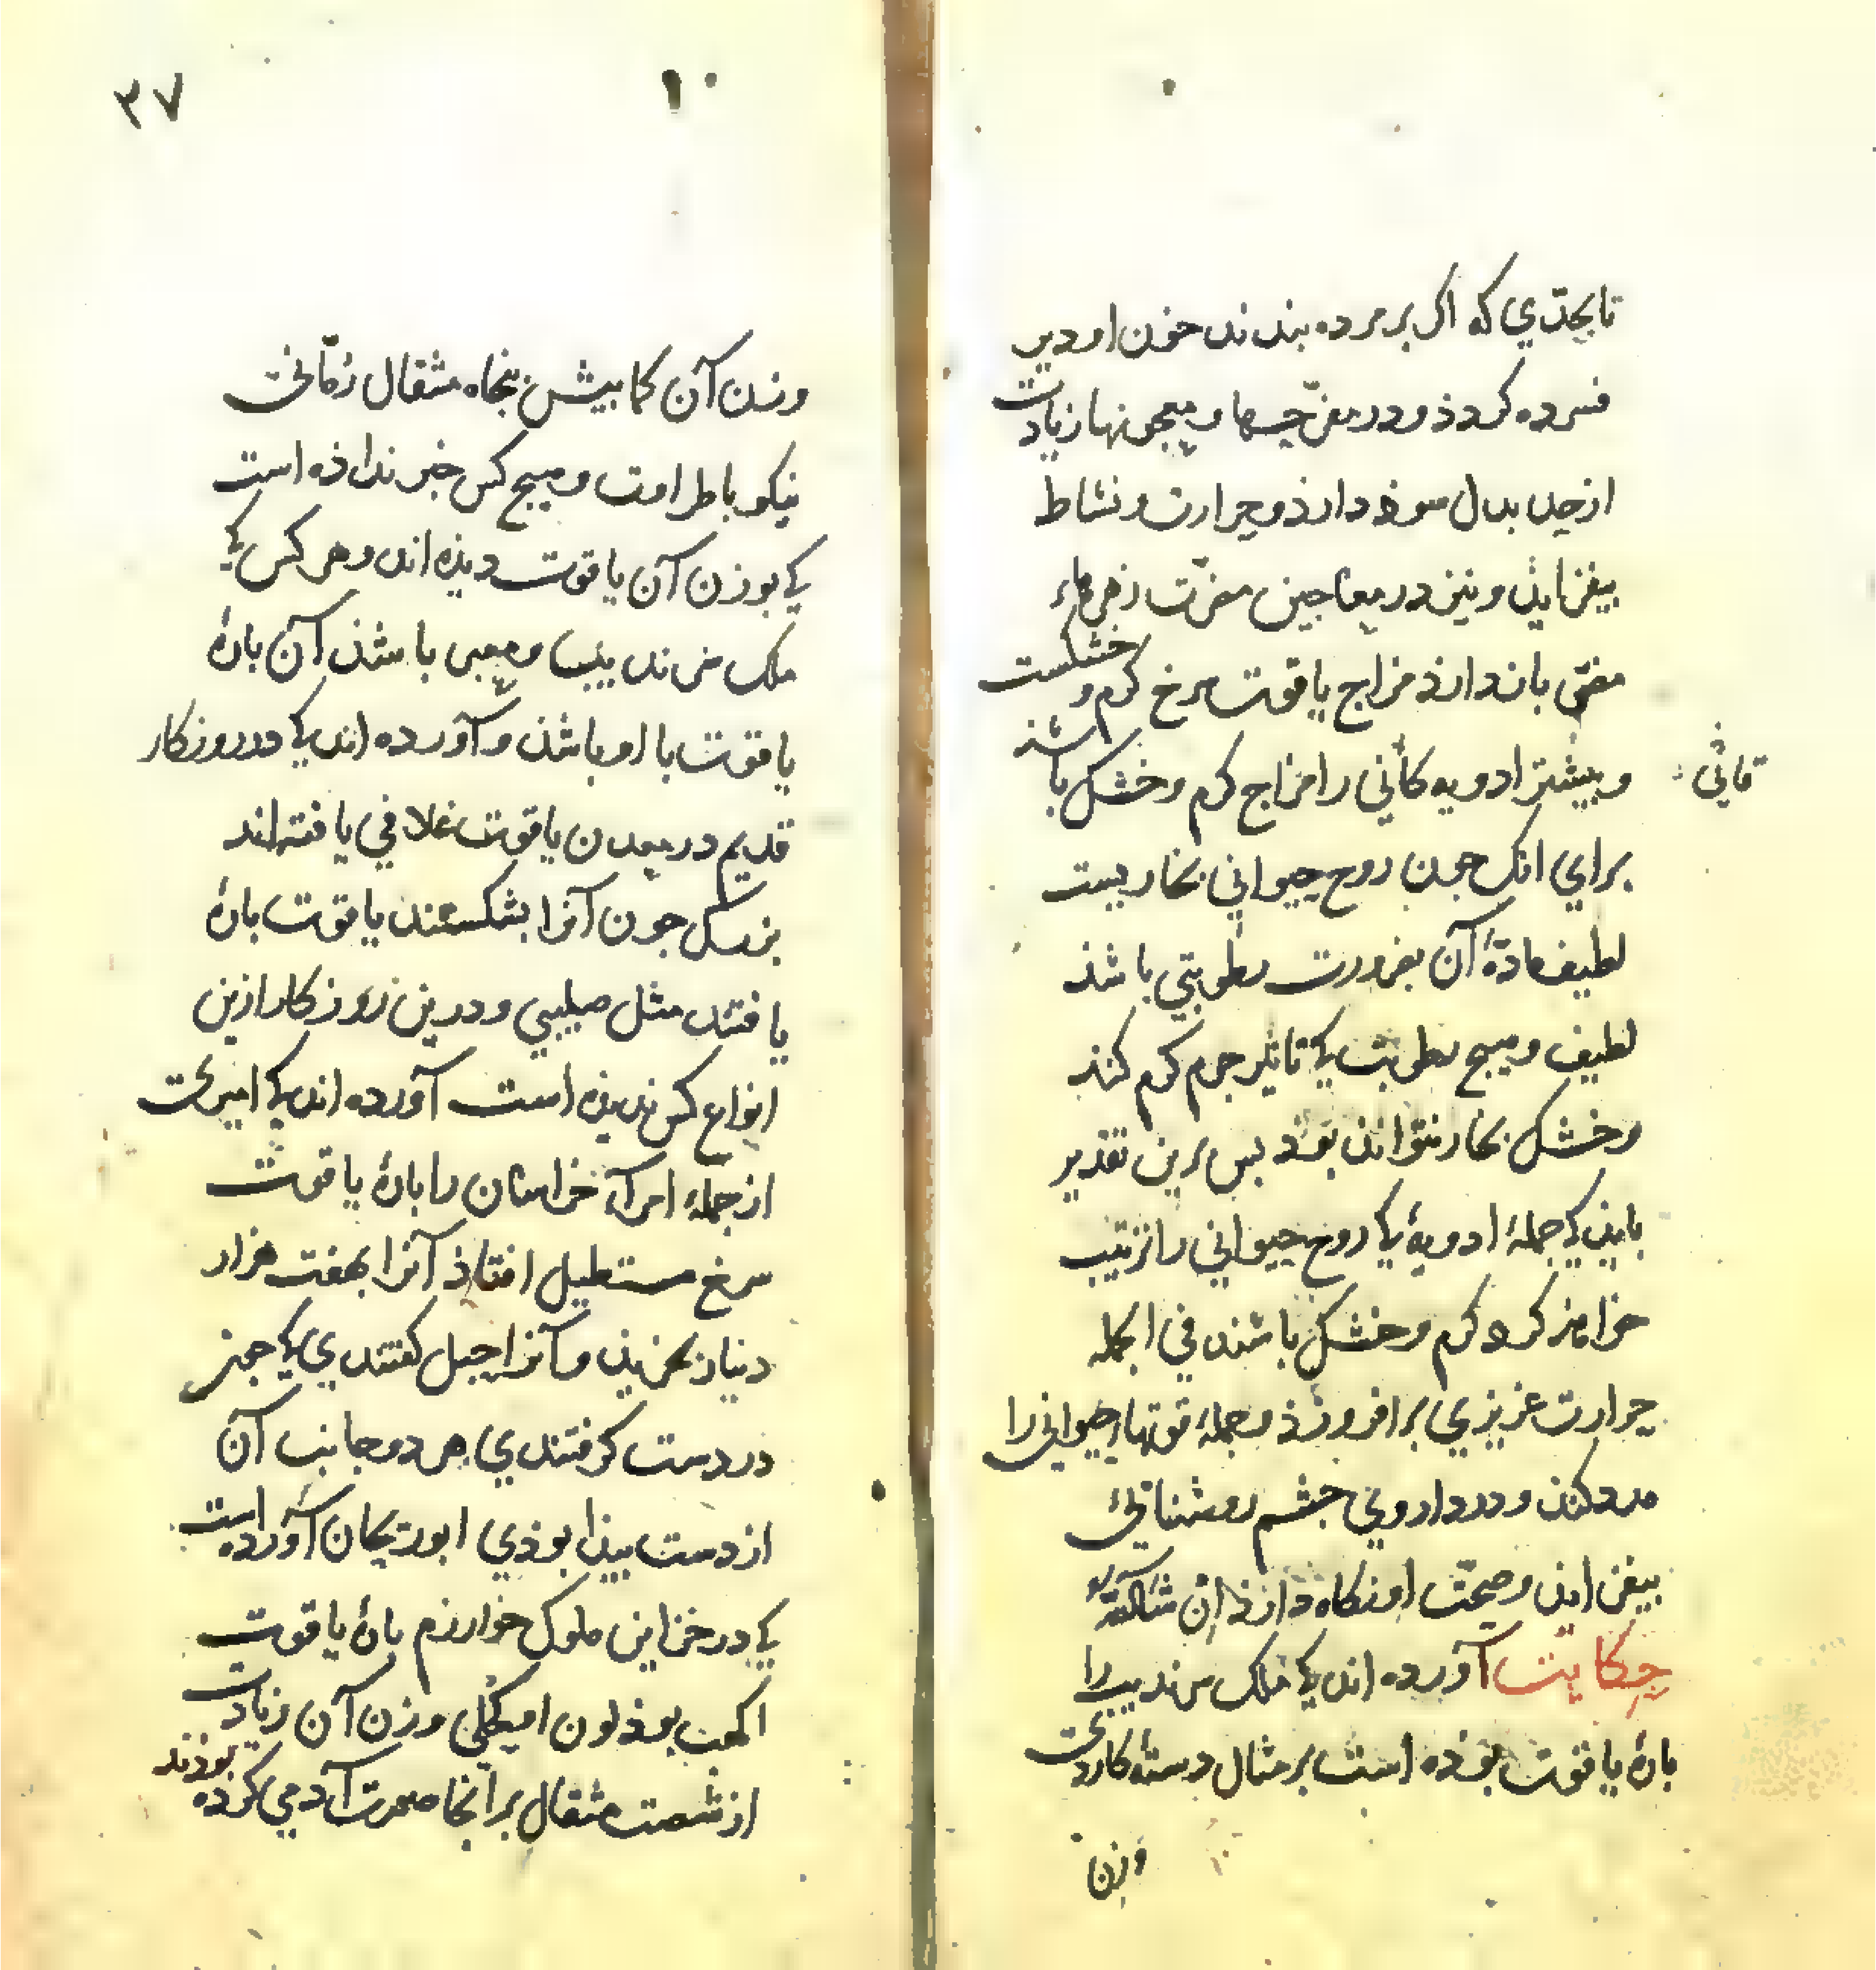 تابحدّي که اکر بر مرده بندند خون او دیر
فسرده کردذ و در مفرّحها و معجونها زیادت
از حد بدل سوذ دارذ و حرارت و نشاط
بیفزایذ و نیز در معاجین مضرّت زهرهاء
مفنی بازدارذ مزاج یاقوت سرخ کرم و خشکست
و بیشتر ادویه کانی را مزاج کرم و خشک باشذ
فائی
برای انک جون روح حیوانی بخاریست
لطیف مادّۀ آن بضرورت رطوبتی باشذ
لطیف و هیچ رطوبت کی تاثیر جرم کرم کند
و خشک بخار نتواند بوذ بس برین تقدیر
باید کی جملۀ ادویۀ کی روح حیوانی را ترتیب
خواهند کرد کرم و خشک باشند في الجمله
حرارت غریزي برافروزذ و جملۀ قوتهاء حیوانی را
مدد کند و در داروي جشم روشنائی
بیفزاید و صحّت او نکاه دارذ ان شاالله
حکایت آورده اند کی ملک سرندیب را
بارۀ یاقوت بوذه است بر مثال دستۀ کاردی
وزن
۱۰
۳۷
وزن آن کمابیش بنجاه مثقال رمّانی
نیکو باطراوت و هیچ کس خبر نداذه است
کی بوزن آن یاقوت دیذه اند و هر کس کی
ملک سرندیب و معبر باشذ آن بارۀ
یاقوت با او باشذ و آورده اند کی در روزکار
قدیم در معدن یاقوت غلافي یافته اند
بزرک جون آنرا بشکستند یاقوت بارۀ
یافتند مثل صلیبي و درین روزکار ازین
انواع کس ندیذه است آورده اند کی امیری
از جملۀ امراء خراسان را بارۀ یاقوت
سرخ مستطیل افتاذ آنرا بهفت هزار
دینار بخریذ و آنرا جبل کفتندي کی جون
در دست کرفتندي هر دو جانب آن
از دست بیذا بوذي ابو ریحان آورده است
کی در خزاین ملوک خوارزم بارۀ یاقوت
اکهب بوذ لون او کحلی وزن آن زیادت
از شصت مثقال بر آنجا صورت آدمي کرده بوذند